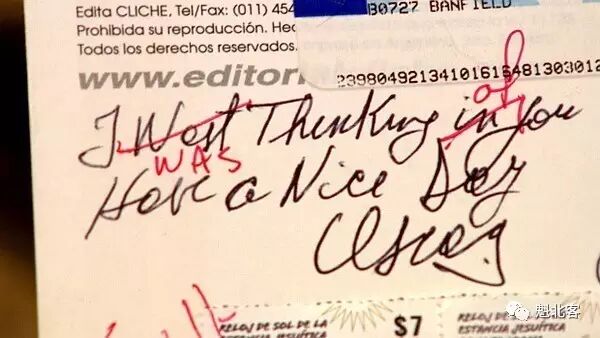 Edita CLICHE, Tel/Fax: (011) 454
Prohibida su reproducción. Hec
Todos los derechos reservados.
www.editori
B0727 BANFIELD
23980492134101616481303012
of
I West Thenking in you
WAS
Have a Nice Day
Oscar
RELOJ DE SOL DE LA
ESTANCIA JESUÍTICA
$7
RELOJ DE SOL DE LA
ESTANCIA JESUÍTICA
魁北客